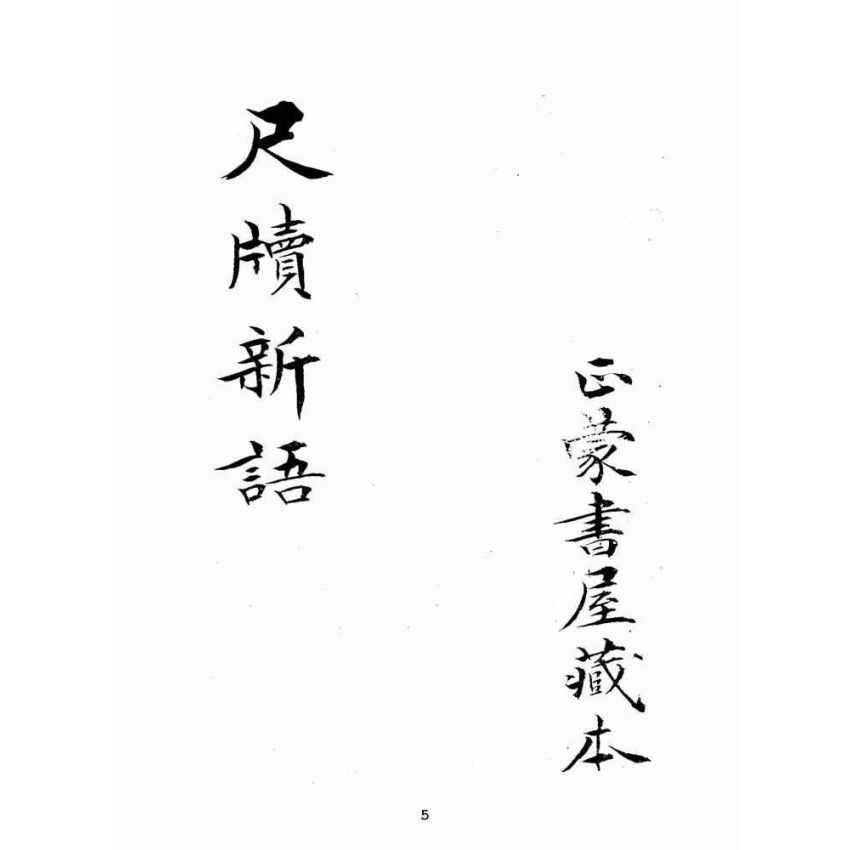 正蒙書屋藏本
尺牘新語
5